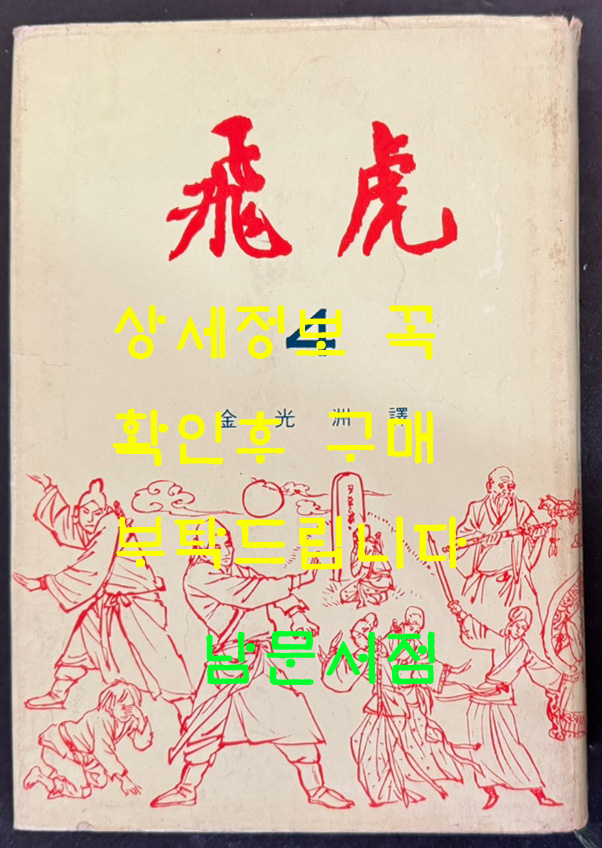 飛虎
4
상세정보 꼭
金光洲 譯
확인후 구매
부탁드립니다
남문서점